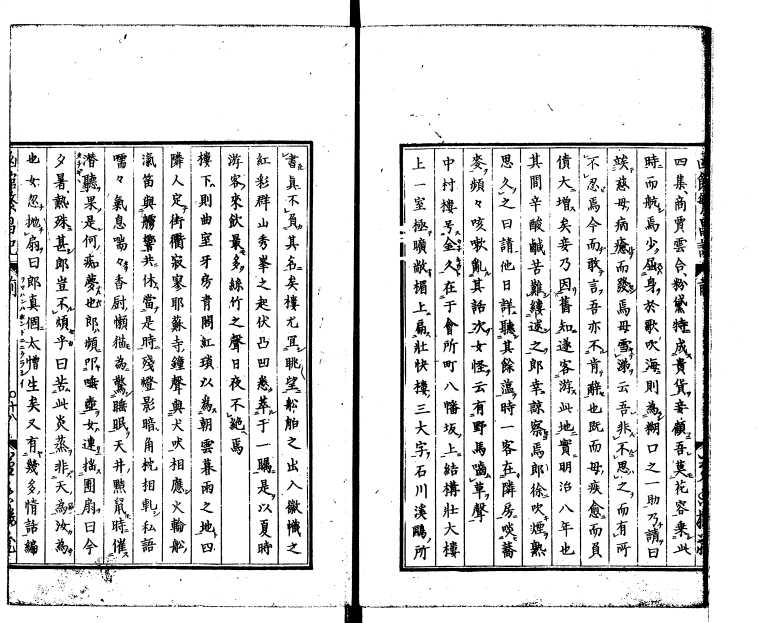 四集商賈雲合粉黛特成貴貨妾顧吾莫花容乘此
時而航焉少屈身於歌吹海則為糊口之一助乃請曰
竢慈母病癒而發焉母雪涕云吾非不思之而有所
不忍焉今而敢言吾亦不肯辭也既而母疾愈而負
債大增矣妾乃因舊知遂客游此地實明治八年也
其間辛酸鹹苦難縷述之郎幸諒察焉郎徐吹煙熟
思久之曰請他日詳聽其餘蘊時一客在隣房啖蕎
麥頻々咳嗽亂其話次女怪云有野馬嚙草聲
中村樓号金久在于會所町八幡坂上結構壯大樓
上一室極曠敞楣上扁壯快樓三大字石川溪鷗所
書真不負其名矣樓尤宜眺望船舶之出入徽幟之
紅彩群山秀峯之起伏凸凹悉萃于一矚是以夏時
游客來飲最多絲竹之聲日夜不絕焉
樓下則曲室牙房青閣紅瑣以為朝雲暮雨之地四
隣人定街衢寂寥耶蘇寺鐘聲與犬吠相應火輪船
瀛笛與觱響共休當是時殘燈影暗角枕相軋私語
嚅々氣息喘々香尉懶猫為驚睡眠天井黠鼠時催
潛聽果是何痴夢也郎頻叩唾壺女連搖團扇曰今
夕暑熱殊甚郎豈不煩乎曰苦此炎蒸非天為汝為
也女忽拋扇曰郎真個太憎生矣又有幾多情話編